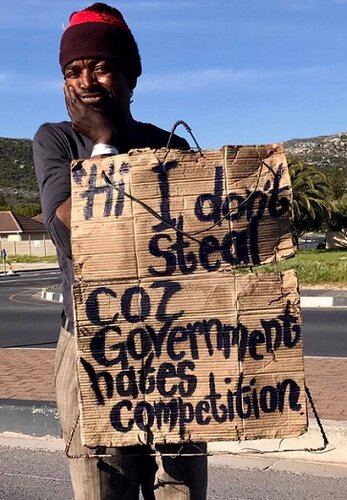 "Hi I don't
steal
coz
Government
hates
competition.